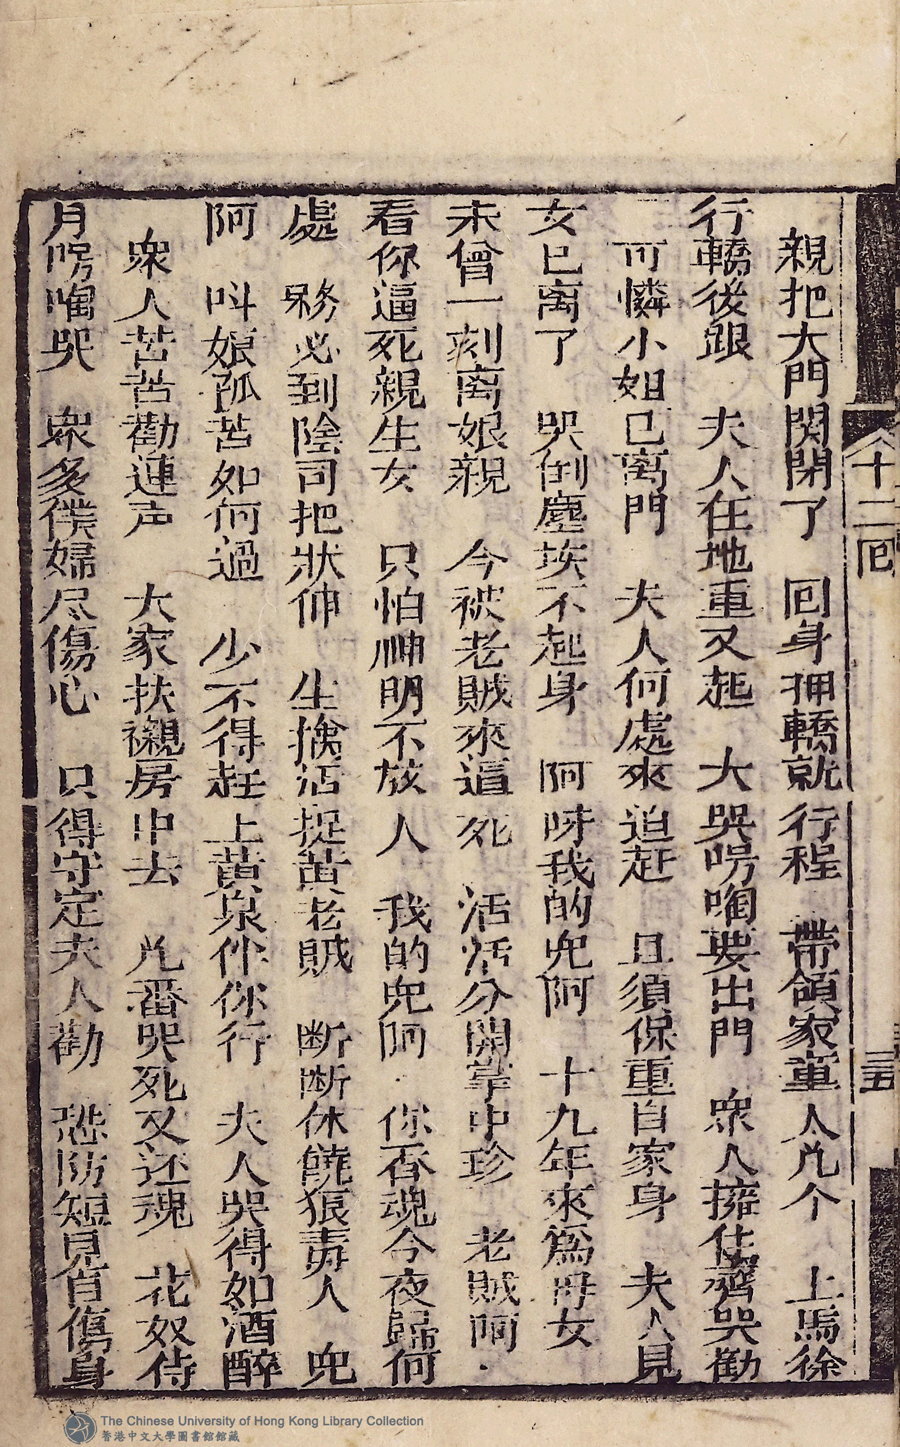 十二回
三五
親把大門関閉了　回身押轎就行程　帶領家童人几个　上馬徐
行轎後跟　夫人在地重又起　大哭咷啕要出門　衆人擁住齊哭勸
可憐小姐已离門　夫人何處來追赶　且須保重自家身　夫人見
女已离了　哭倒塵埃不起身　阿呀我的兒阿　十九年來爲母女
未曾一刻离娘親　今被老賊來逼死　活活分開掌中珍　老賊阿
看你逼死親生女　只怕神明不放人　我的兒阿　你香魂今夜歸何
處　務必到陰司把狀伸　生擒活捉黄老賊　断断休饒狠毒人　兒
阿　呌娘孤苦如何過　少不得赶上黄泉伴你行　夫人哭得如酒醉
衆人苦苦勸連声　大家扶襯房中去　几番哭死又还魂　花奴侍
月咷啕哭　衆多僕婦尽傷心　只得守定夫人勸　恐防短見自傷身
The Chinese University of Hong Kong Library Collection
香港中文大學圖書館館藏